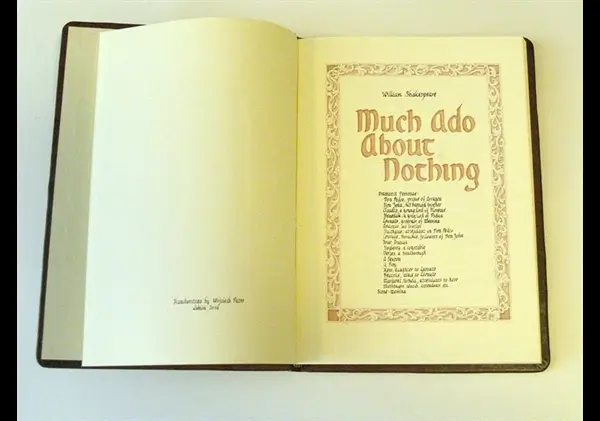 Handwritten by
William Shakespeare
Much Ado
About
Nothing
Dramatis Personae:
Don Pedro, prince of Arragon
Don John, his bastard brother
Claudio, a young lord of Florence
Benedick, a young lord of Padua
Leonato, governor of Messina
Antonio, his brother
Balthasar, attendant on Don Pedro
Conrade, Borachio, followers of Don John
Friar Francis
Dogberry, a constable
Verges, a headborough
A Sexton
A Boy
Hero, daughter to Leonato
Beatrice, niece to Leonato
Margaret, Ursula, attendants to Hero
Messengers, Watch, Attendants etc.
Scene-Messina